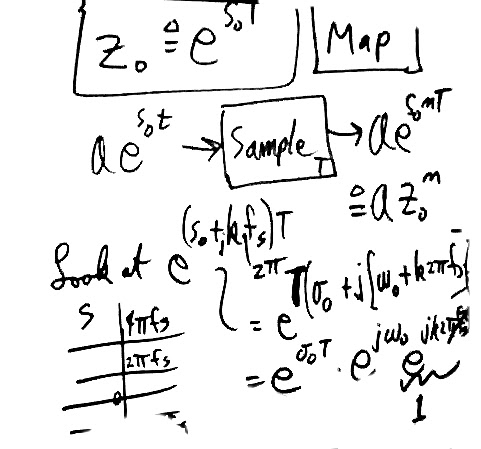 z₀ ≜ e^{s₀T} Map
ae^{s₀t} → Sample T → ae^{s₀nT}
≜ a z₀ⁿ
Look at e^{(s₀+jk2πf_s)T}
= e^{T(σ₀+j[ω₀+k2πf_s]
= e^{σ₀T} · e^{jω₀} e^{jk2πf_s}
1
S
4πfs
2πfs
0